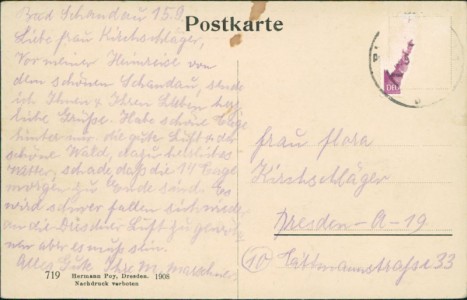 Bad Schandau 15.9.
Postkarte
Liebe Frau Kirchschläger,
Vor meiner Heimreise von
dem schönen Schandau, sende
ich Ihnen & Ihren Lieben herz
liche Grüße. Habe schöne Tage
hinter mir die gute Luft & der
schöne Wald, dazu herrliches
Wetter, schade, daß die 14 Tage
morgen zu Ende sind. Es
wird schwer fallen sich wieder
an die Dresdner Luft zu
aber es muß sein.
Alles Gute Ihre M.
Frau Flora
Kirschschläger
Dresden-A-19
(10)
33
719 Hermann Poy, Dresden. 1908
Nachdruck verboten